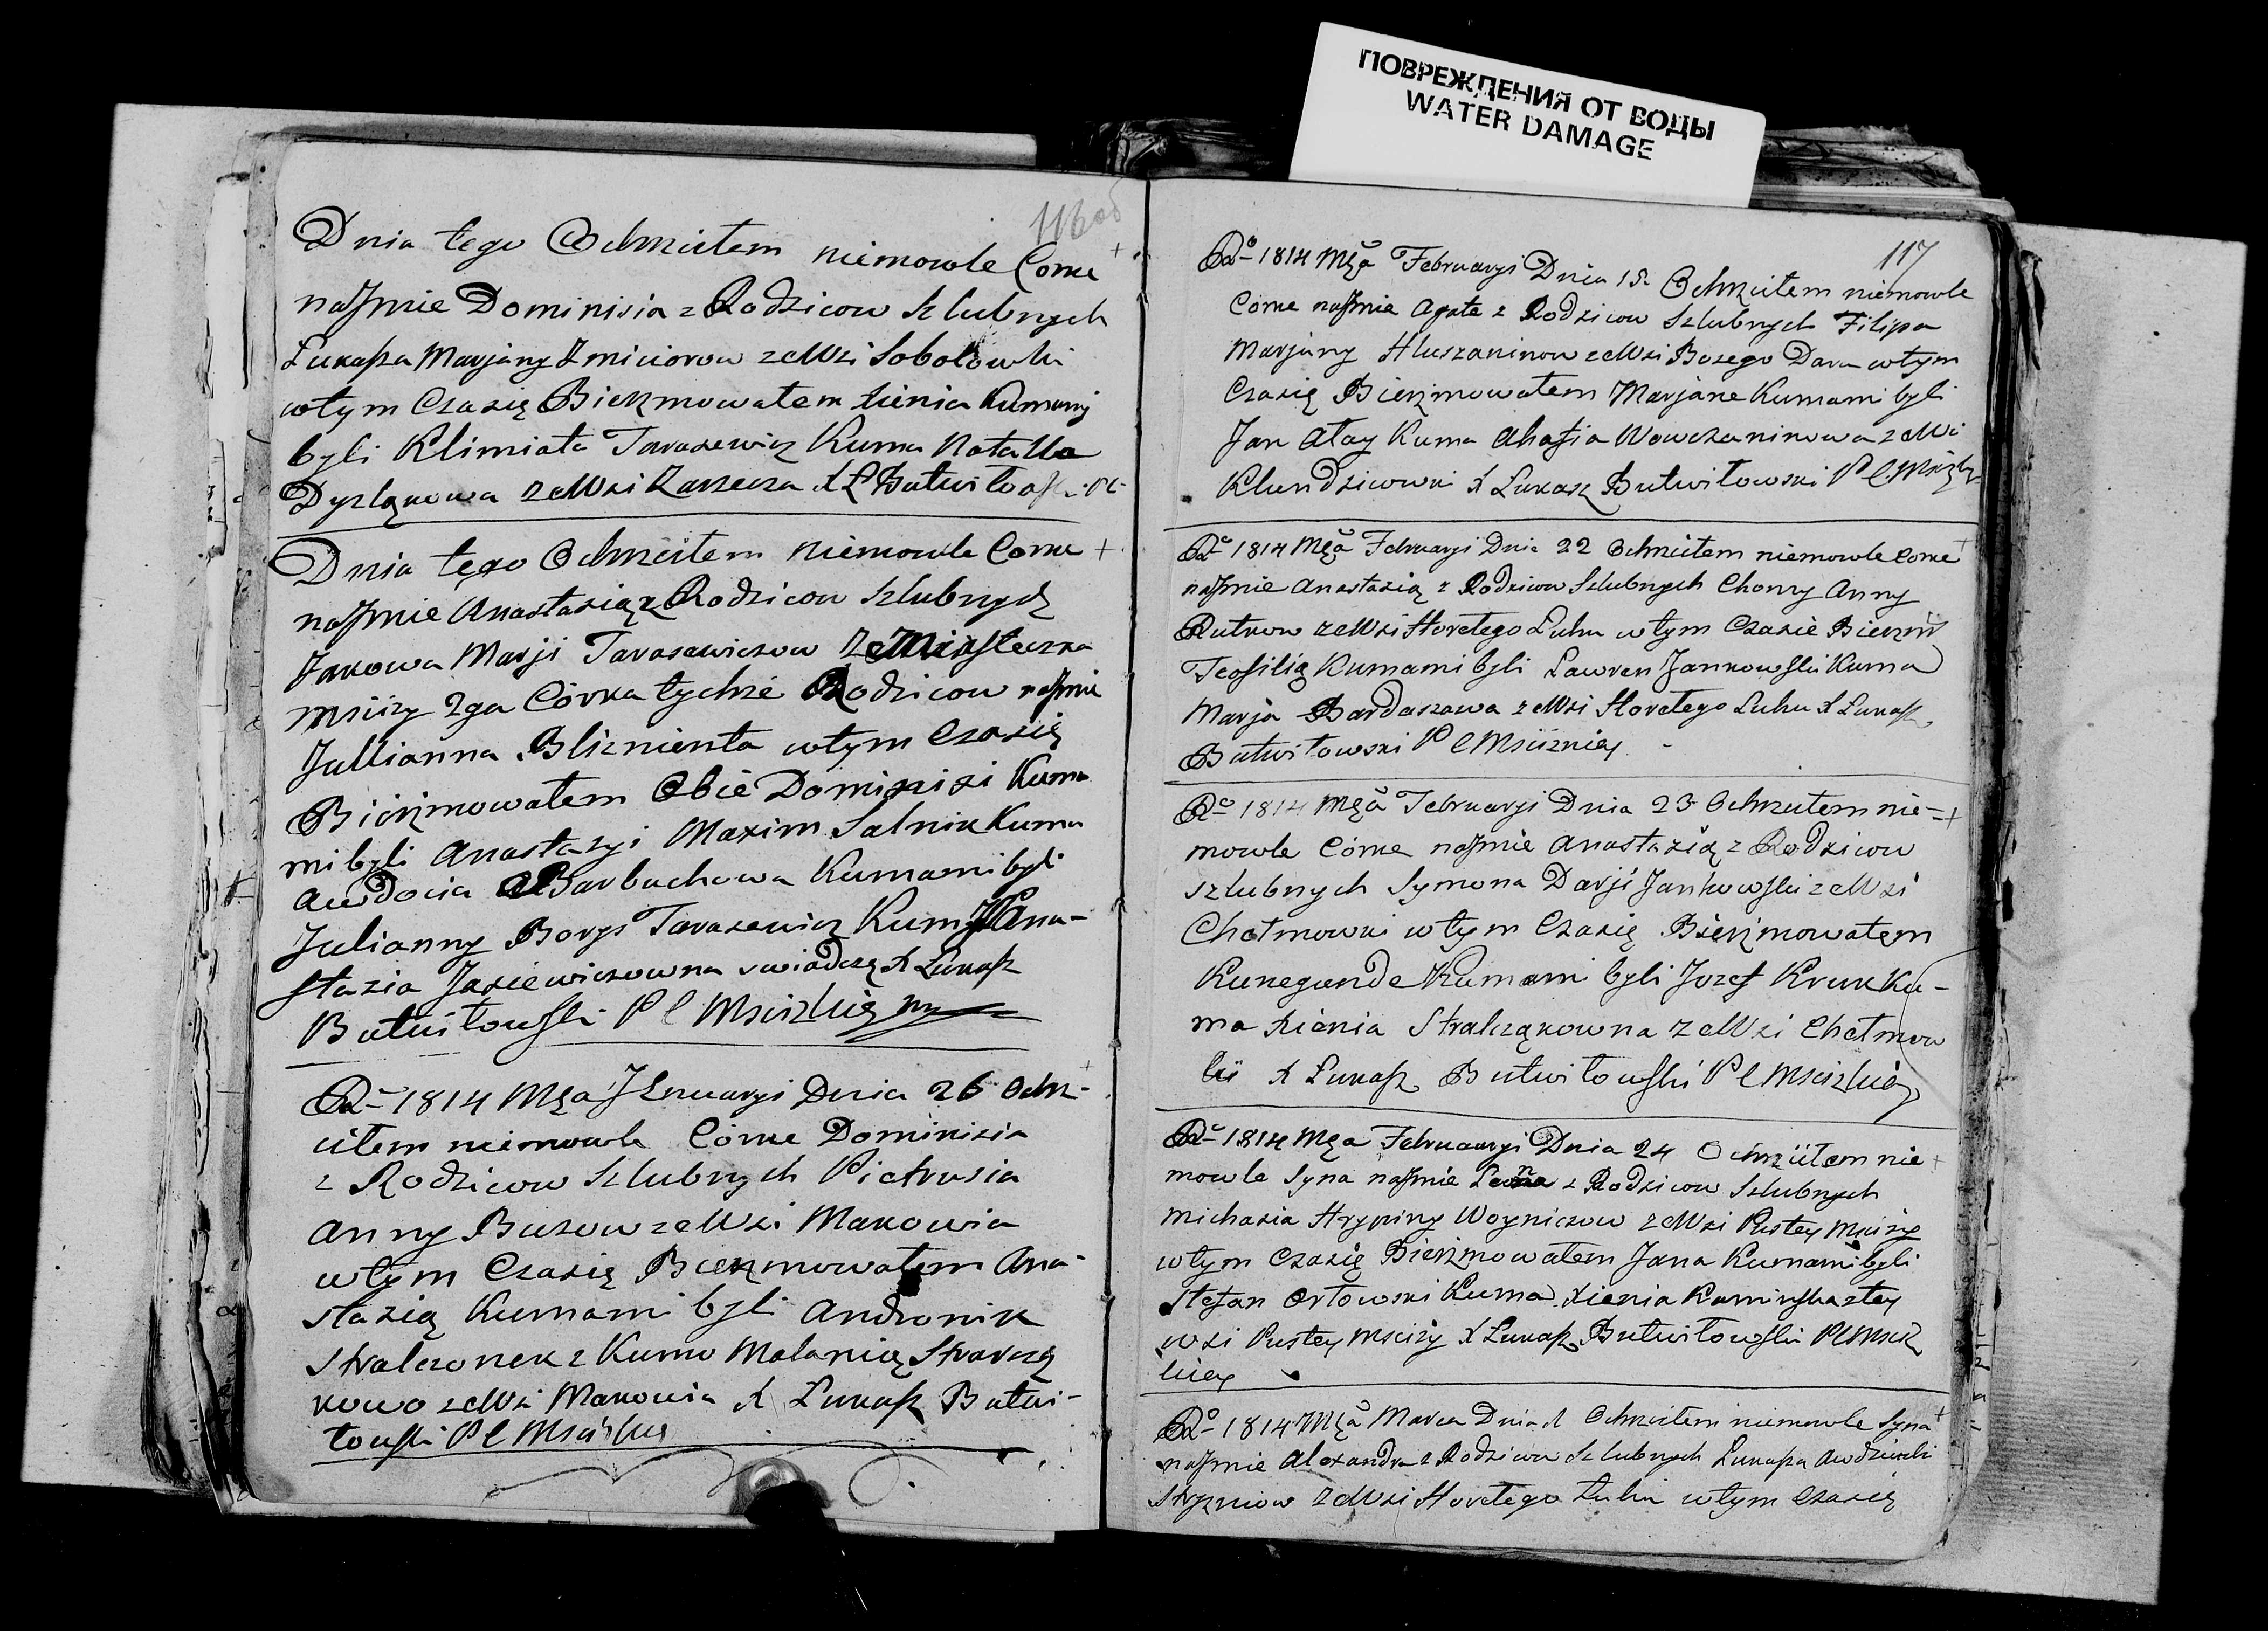 ПОВРЕЖДЕНИЯ ОТ ВОДЫ
WATER DAMAGE
116 об
Dnia tego Ochrzciłem niemowle Corke
na Jmie Dominisia z Rodzicow Szlubnych
Łukasza Marjany Zmiciorow ze Wsi Sobolowki
w tym Czasię Bierzmowałem Xienia Kumamy
byli Klimiata Tarasewicz Kuma Natalla
ze Wsi Zarzecza X Ł Butwiłowski P C
Dnia tego Ochrzciłem niemowle Corke
na Jmie Anastazią z Rodzicow Szlubnych
Jakowa Marji Tarasewiczow Ze Miasteczka
Msciży 2ga Córka tychże Rodzicow na Jmie
Jullianna Bliznienta w tym Czasię
Bierzmowałem Obie Dominisi Kuma
mi byli Anastazyi Maxim Salnik Kuma
Audocia Barbuchowa Kumami byli
Julianny Borys Tarasewicz Kuma Ana-
stazia Jasiewiczowna swiadczę X Łukasz
Butwiłowski P C Mscizki
Ro 1814 Mca Jenuaryi Dnia 26 Ochrz-
ciłem niemowle Corke Dominisia
z Rodzicow Szlubnych Pietrusia
Anny Busow ze Wsi Makowia
w tym Czasię Bierzmowałem Ana-
stazią Kumami byli Andronik
Stralczonek z Kumo Malanią
kowo ze Wsi Makowia X Łukasz Butwi-
łowski P C Mscizki
117
Ro 1814 Mca Februaryi Dnia 15 Ochrzciłem niemowle
Corke na Jmie Agate z Rodzicow Szlubnych Filipa
Marjany Hluszaninow ze Wsi Bożego Daru w tym
Czasię Bierzmowałem Marjane Kumami byli
Jan Ałay Kuma Ahafia Wowczaninowa ze Wsi
Klundziewki X Łukasz Butwiłowski P C
Ro 1814 Mca Februaryi Dnia 22 Ochrzciłem niemowle Corke
na Jmie Anastazią z Rodzicow Szlubnych Chomy Anny
Rutkow ze Wsi Horełego Łuhu w tym Czasie Bierzm
Teofilią Kumami byli Lawren Jankowski Kuma
Marja Bardaszowa ze Wsi Horełego Łuhu X Łukasz
Butwiłowski P C
Ro 1814 Mca Februaryi Dnia 23 Ochrzciłem nie-
mowle Corke na Jmie Anastazią z Rodzicow
szlubnych Symona Darji Jankowski ze Wsi
Chełmowki w tym Czasię Bierzmowałem
Kunegunde Kumami byli Jozef Kruk Ku-
ma Xienia Stralcząkowna ze Wsi Chełmow
ki X Łukasz Butwiłowski P C Mscizki
Ro 1814 Mca Februaryi Dnia 24 Ochrzciłem nie
mowle Syna na Jmie z Rodzicow Szlubnych
Michasia Hrypiny Woyniczow ze Wsi Pustey Msciży
w tym Czasię Bierzmowałem Jana Kumami byli
Stefan Orłowski Kuma Xienia Kaminska z tey
wsi Pustey Msciży X Łukasz Butwiłowski P C Msciz
kiey
Ro 1814 Mca Marca Dnia 1 Ochrzciłem niemowle Syna
na Jmie Alexandra z Rodzicow Szlubnych Łukasza
ze Wsi Horełego Łuhu w tym Czasię